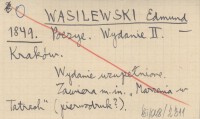 WASILEWSKI Edmund
1849. Poezye. Wydanie II. —
Kraków.
Wydanie uzupełnione.
Zawiera m.in. „Marzenia w
Tatrach" (pierwodruk?).